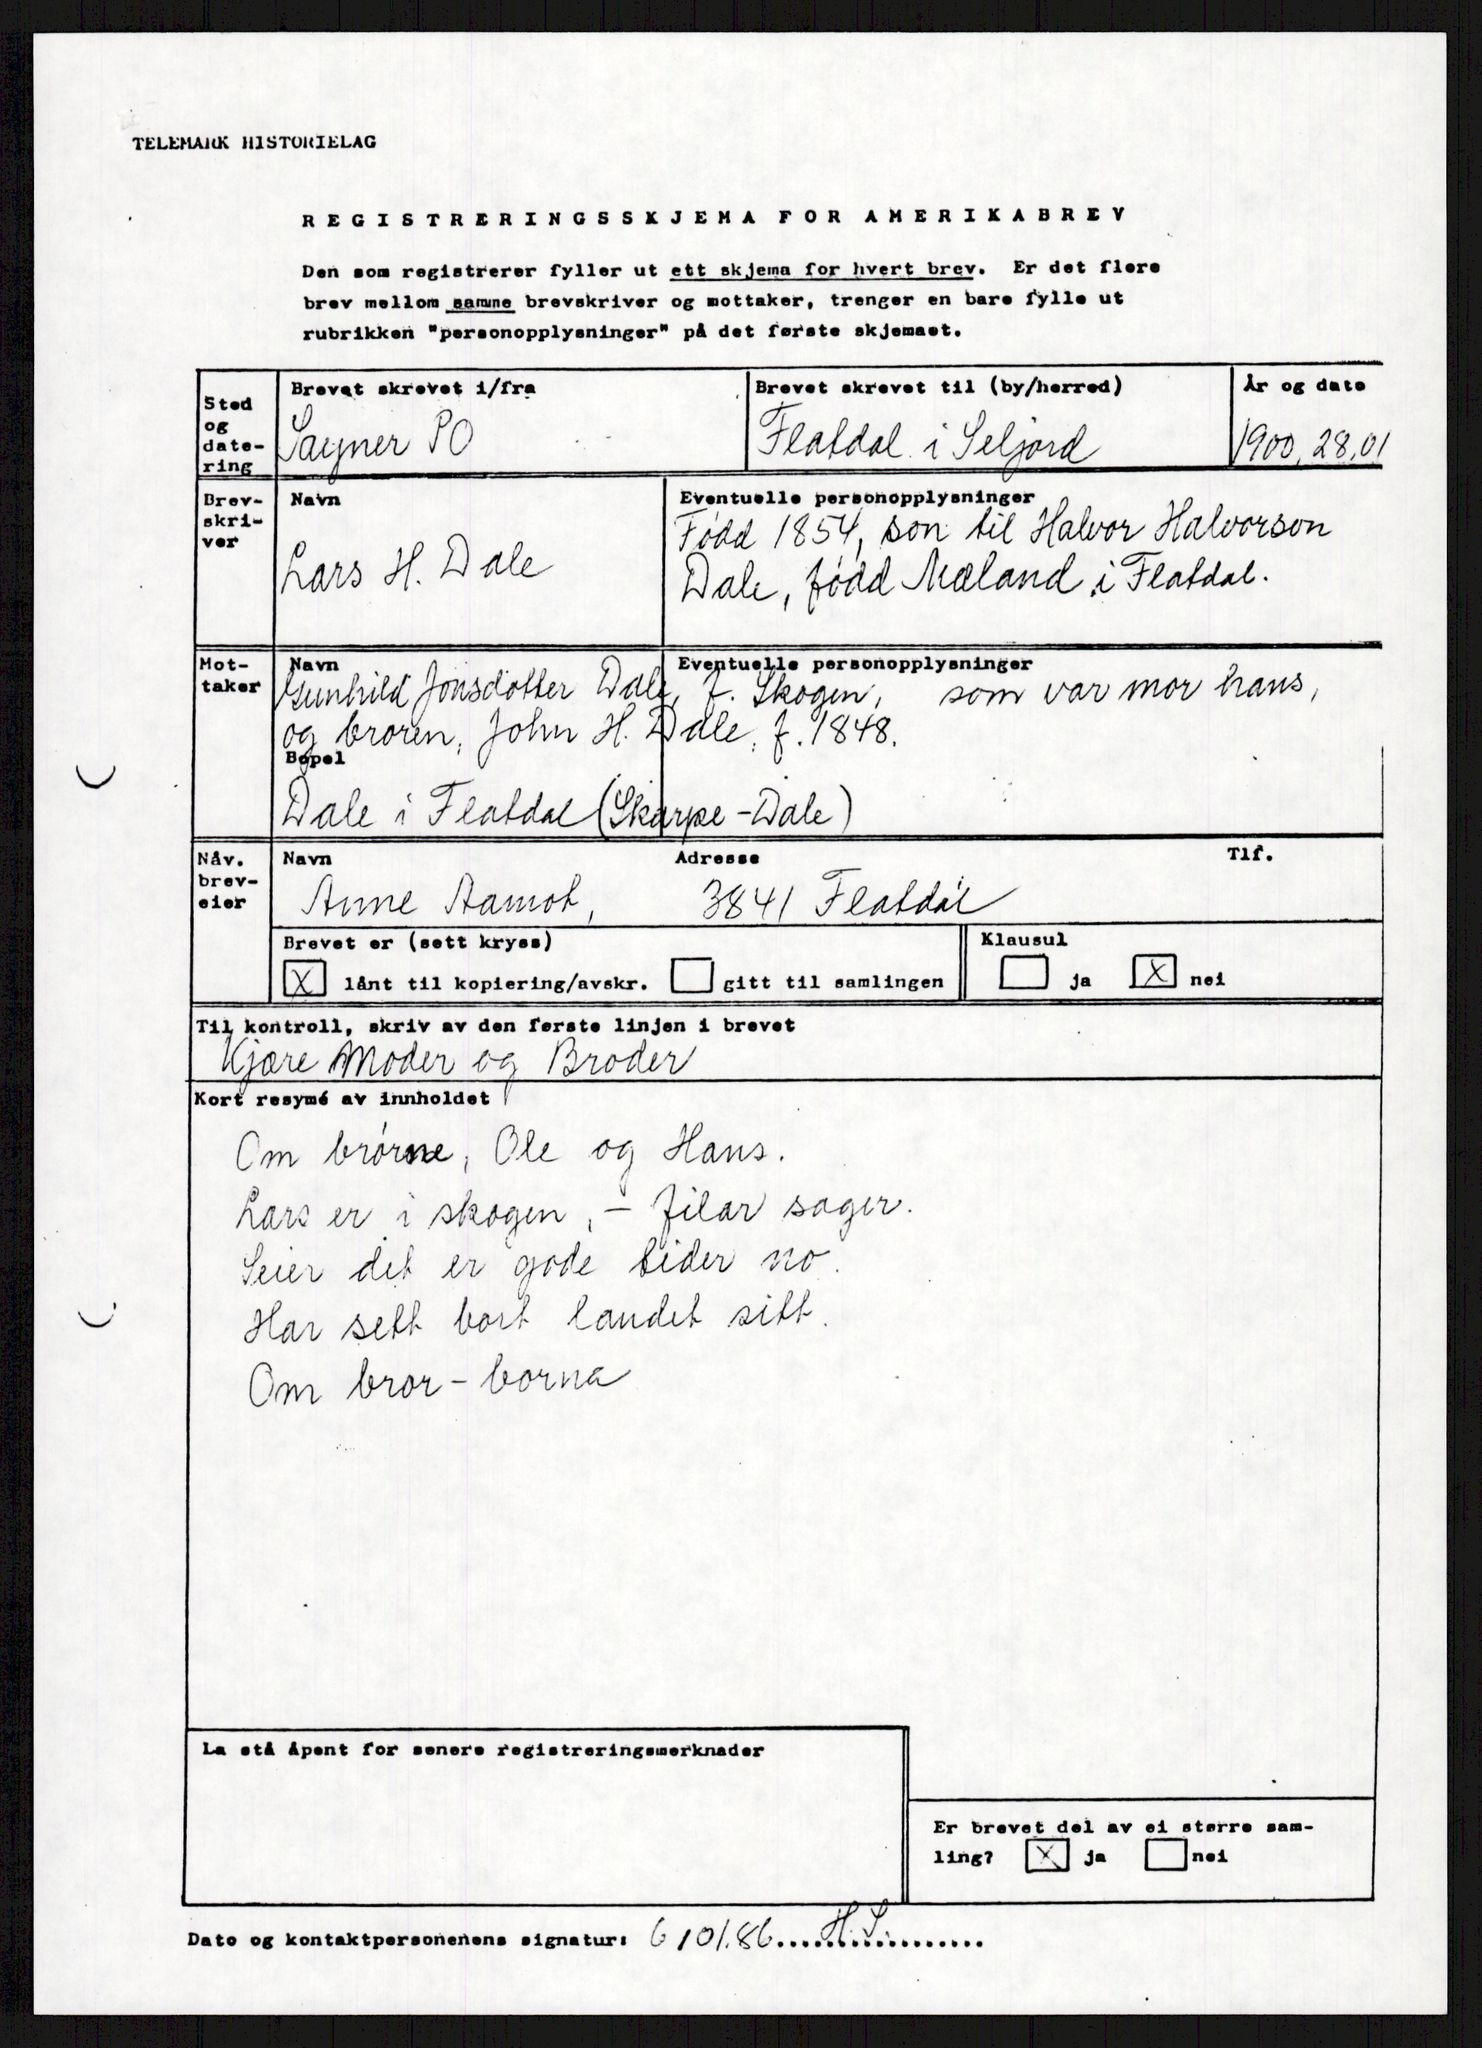 TELEMARK HISTORIELAG
REGISTRERINGSSKJEMA FOR AMERIKABREV
Den som registrerer fyller ut ett skjema for hvert brev. Er det flere
brev mellom samme brevskriver og mottaker, trenger en bare fylle ut
rubrikken "personopplysninger" på det første skjemaet.
Sted
og
date-
ring
Brevet skrevet i/fra
Sayner PO
Brevet skrevet til (by/herred)
Flatdal i Seljord
År og dato
1900, 28,01
Brev-
skri-
ver
Navn
Lars H. Dale
Eventuelle personopplysninger
Fødd 1854, son til Halvor Halvorson
Dale, fødd Mæland i Flatdal.
Mot-
taker
Navn
Eventuelle personopplysninger
Gunhild Jonsdotter Dale, f. Skogen, som var mor hans,
og broren, John H. Dale, f. 1848.
Bopel
Dale i Flatdal (Skarpe-Dale)
Nåv.
brev-
eier
Navn
Adresse
Tlf.
Anne Aamot, 3841 Flatdal
Brevet er (sett kryss)
Klausul
X lånt til kopiering/avskr.
gitt til samlingen
ja
X nei
Til kontroll, skriv av den første linjen i brevet
Kjære Moder og Broder
Kort resymé av innholdet
Om brørne, Ole og Hans.
Lars er i skogen, - filar sager.
Seier det er gode tider no.
Har sett bort landet sitt.
Om bror-borna
La stå åpent for senere registreringsmerknader
Er brevet del av ei større sam-
ling? X ja nei
Dato og kontaktpersonenens signatur: 6/01.86 H.S.